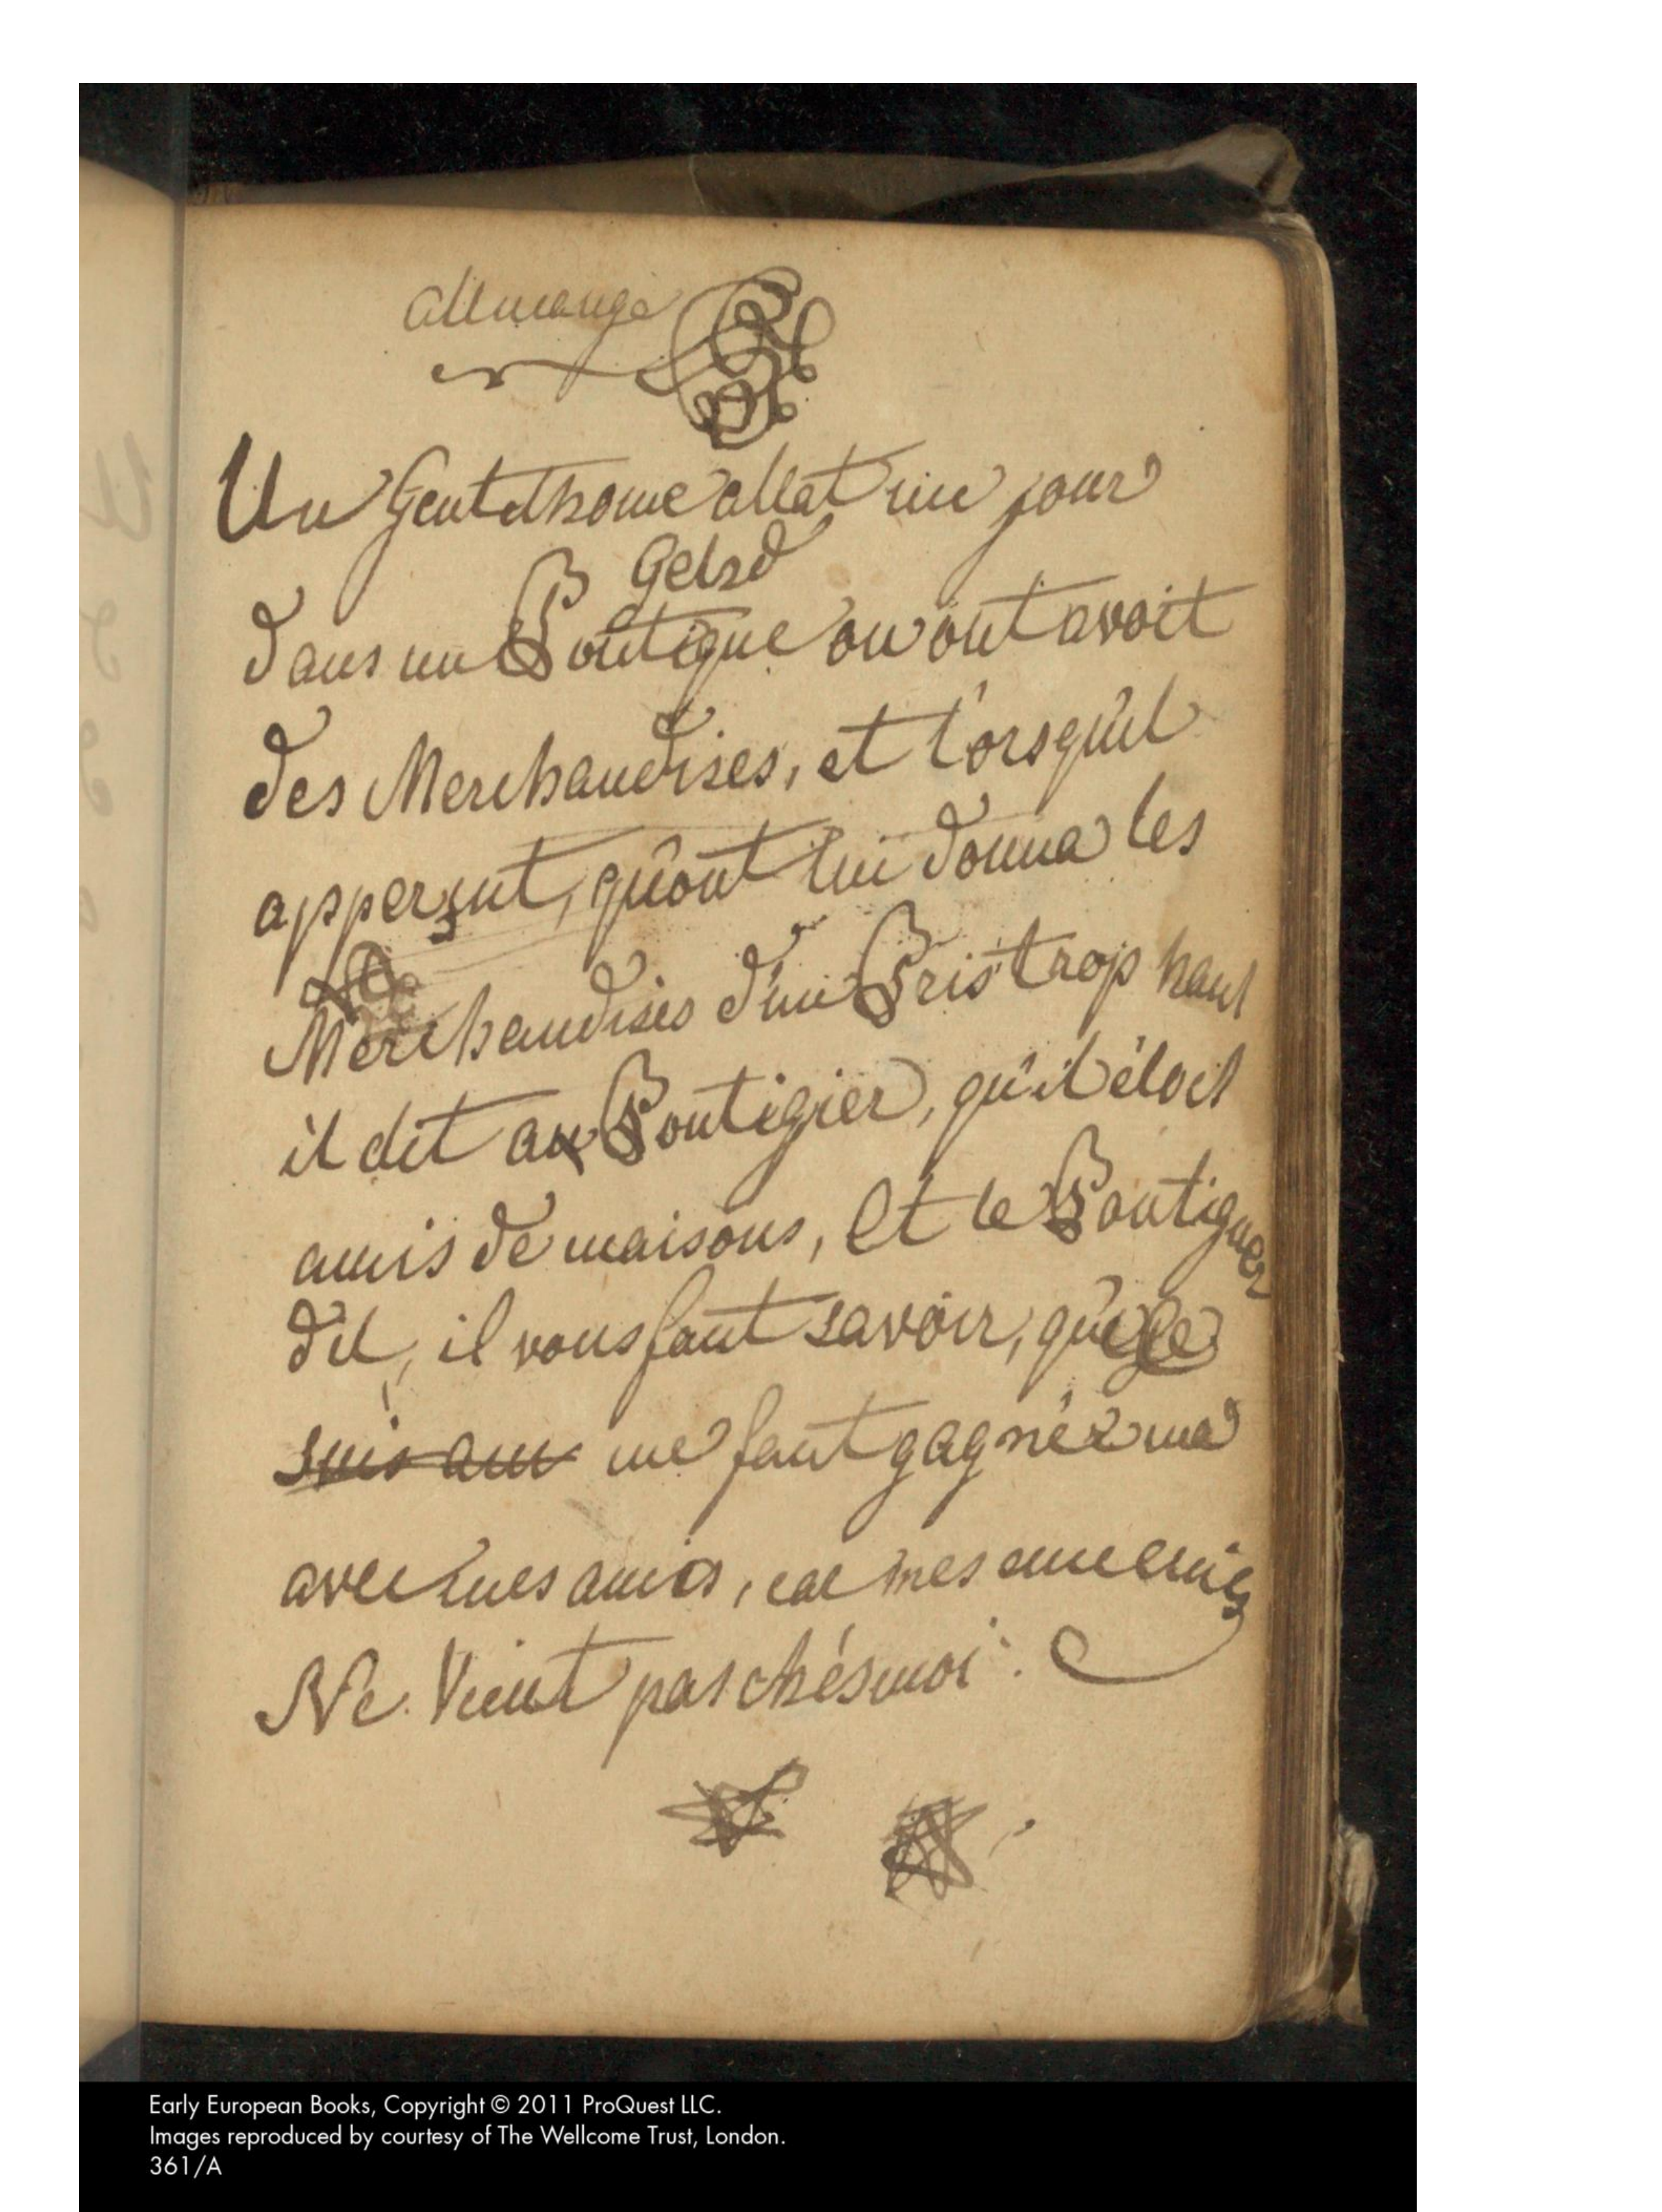 allemange
Un Gentelhome allat un jour
Gelrd
dans un Boutique ou ont avoit
des Merchandises, et l'orsqu'il
apperçut, qu'ont lui donna les
Merchandises d'un Pris trop haut
il dit au Boutigier, qu'il étoit
amis de maisons, Et le Boutiguer
dit, il vous faut savoir, que je
suis am me faut gagnér ma
avec mes amis, car mes ennemis
Ne Vient pas chés moi.
Early European Books, Copyright © 2011 ProQuest LLC.
Images reproduced by courtesy of The Wellcome Trust, London.
361/A